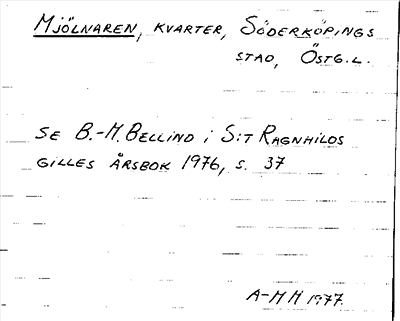 Mjölnaren, kvarter, Söderköpings
stad, Östg.l.
se B.-M. Bellind i S:t Ragnhilds
gilles årsbok 1976, s. 37
A-MH 1977.